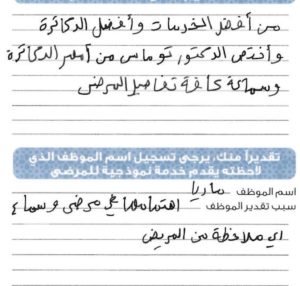 من أفضل الخدمات وأفضل الدكاترة
وأخص الدكتور توماس من أمهر الدكاترة
وسماعة كافة تفاصيل المرض
تقديراً منك، يرجى تسجيل اسم الموظف الذي
لاحظته يقدم خدمة نموذجية للمرضى
اسم الموظف ماريا
سبب تقدير الموظف اهتمامها في مرضى وسماع
اي ملاحظة من المريض